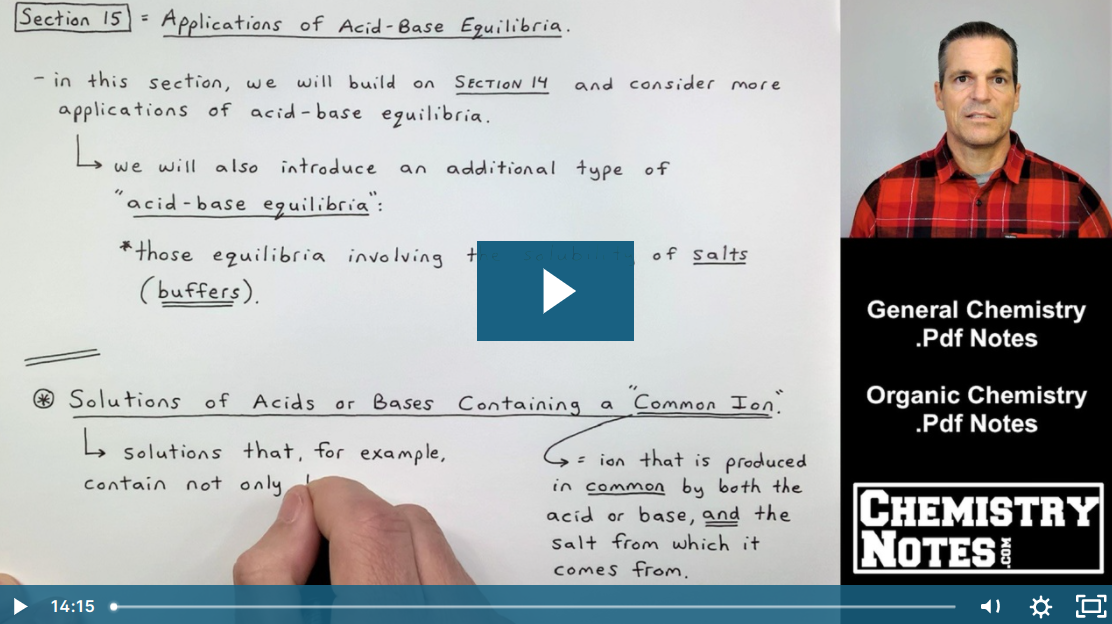 Section 15 = Applications of Acid-Base Equilibria.
- in this section, we will build on SECTION 14 and consider more
applications of acid-base equilibria.
we will also introduce an additional type of
"acid-base equilibria":
*those equilibria involving of salts
(buffers).
* Solutions of Acids or Bases Containing a "Common Ion."
solutions that, for example,
contain not only
= ion that is produced
in common by both the
acid or base, and the
salt from which it
comes from.
General Chemistry
.Pdf Notes
Organic Chemistry
.Pdf Notes
CHEMISTRY
NOTES.COM
14:15